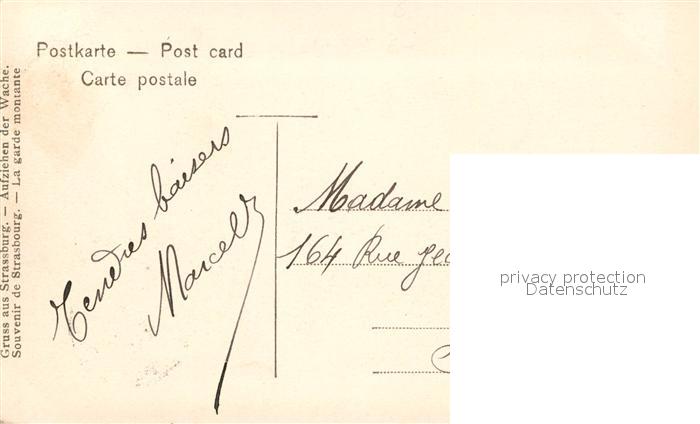 Postkarte — Post card
Carte postale
Gruss aus Strassburg. — Aufziehen der Wache.
Souvenir de Strasbourg. — La garde montante
Tendres baisers
Marcel
Madame
164 Rue
privacy protection
Datenschutz